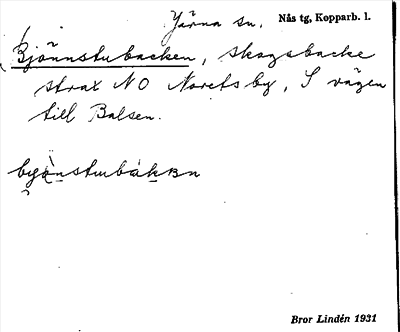 Järna sn. Nås tg, Kopparb. l.
Bjönnstubacken, skogsbacke
strax NO Norets by, S vägen
till Balsen.
Bror Lindén 1931